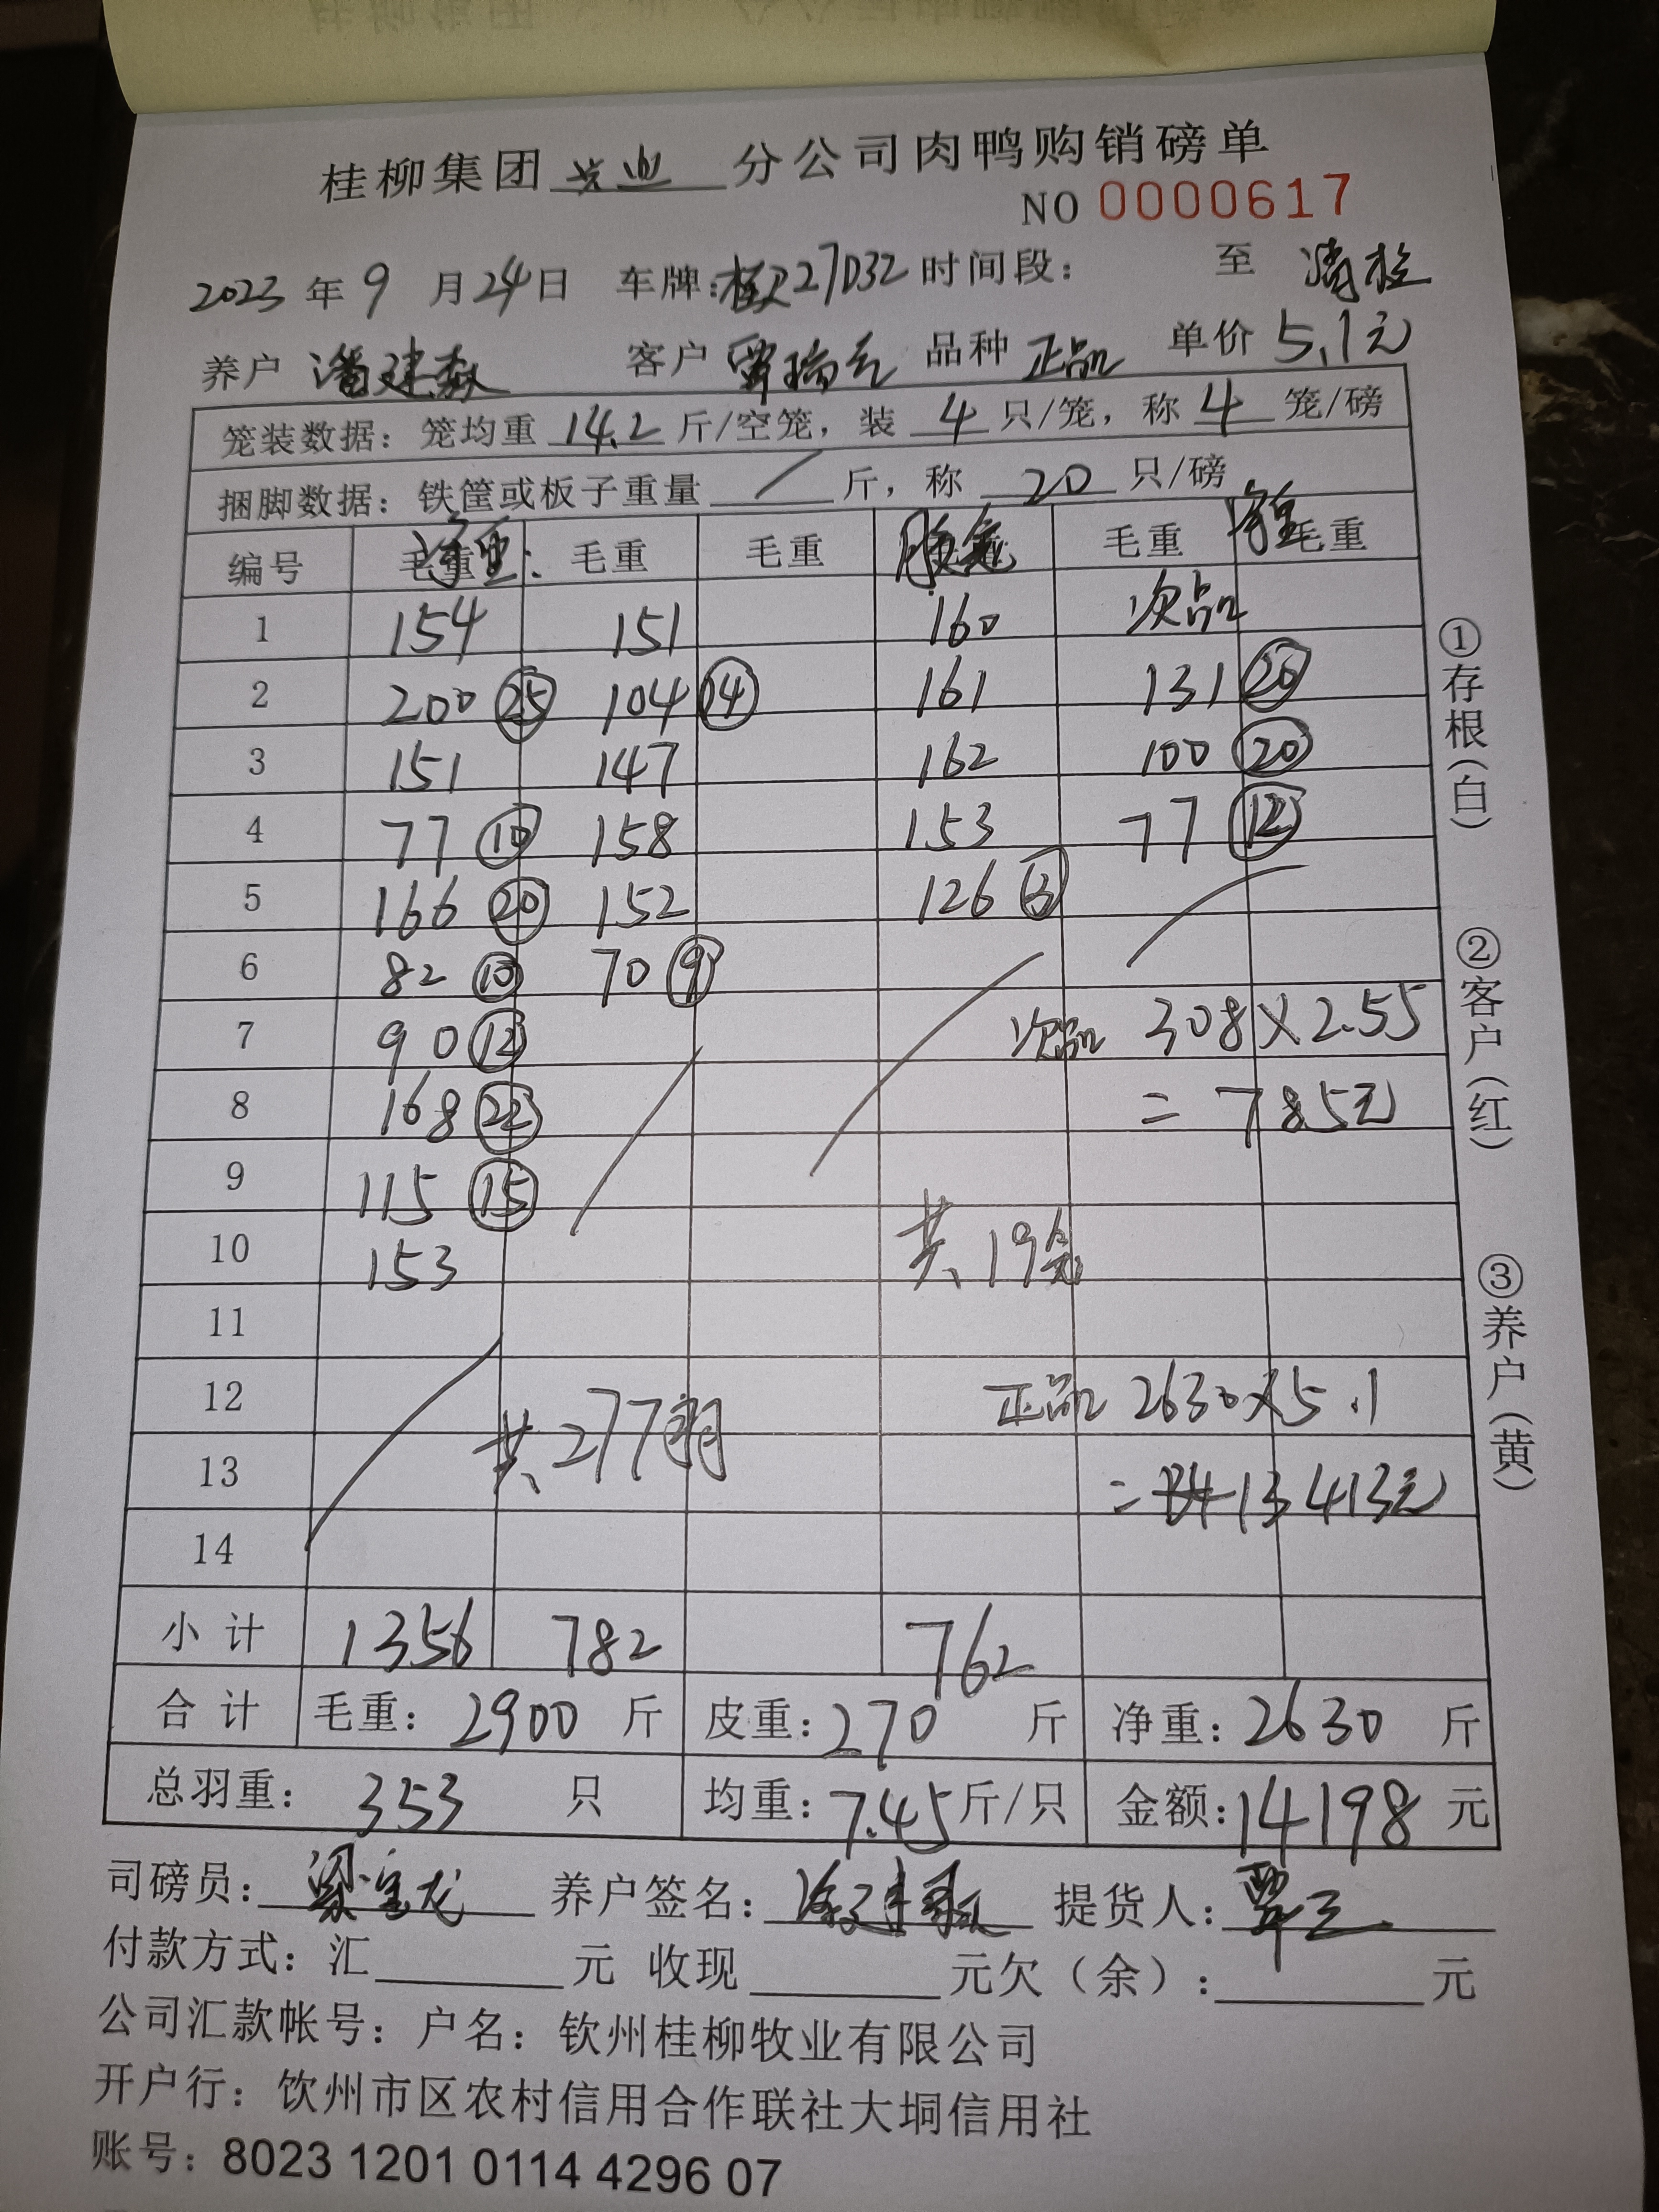 桂柳集团 兴业 分公司肉鸭购销磅单
NO 0000617
2023 年 9 月 24 日 车牌: 27032 时间段: 至
养户 潘建 客户 覃瑞 品种 正品 单价 5.1元
笼装数据: 笼均重 14.2 斤/空笼, 装 4 只/笼, 称 4 笼/磅
捆脚数据: 铁筐或板子重量 / 斤, 称 20 只/磅
编号 毛重 净重: 毛重 毛重 毛重 毛重 净重
1 154 151 160 次品
2 200 ㉕ 104 ⑭ 161 131 ⑳
3 151 147 162 100 ⑳
4 77 ⑩ 158 153 77 ⑫
5 166 ⑳ 152 126
6 82 ⑩ 70 ⑨
7 90 ⑫ 次品 308×2.55
8 168 ㉒ =785元
9 115 ⑮
10 153 共19
11
12 正品 2630×5.1
13 共277 = 13413元
14
小计 1356 782 762
合计 毛重: 2900 斤 皮重: 270 斤 净重: 2630 斤
总羽重: 353 只 均重: 7.45 斤/只 金额: 14198 元
司磅员: 梁宝龙 养户签名: 提货人: 覃
付款方式: 汇 元 收现 元欠(余): 元
公司汇款帐号: 户名: 钦州桂柳牧业有限公司
开户行: 钦州市区农村信用合作联社大垌信用社
账号: 8023 1201 0114 4296 07
①存根(白)
②客户(红)
③养户(黄)